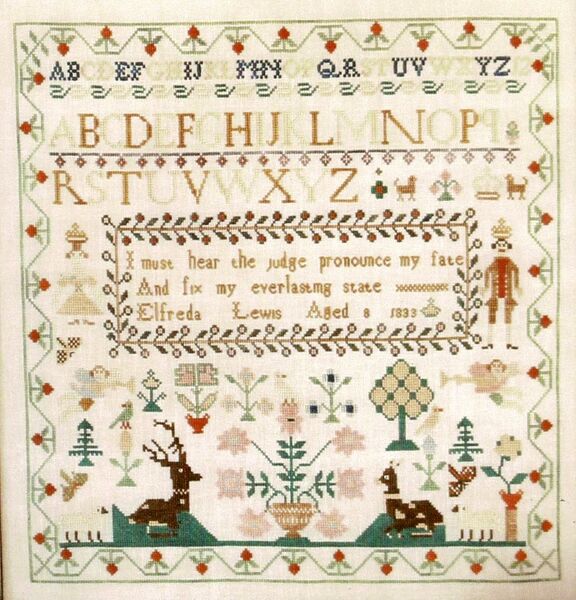 ABCDEFGHIJKLMNOPQRSTUVWXYZ
ABCDEFGHIJKLMNOPq
RSTUVWXYZ
I must hear the judge pronounce my fate
And fix my everlasting state
Elfreda Lewis Aged 8 1833